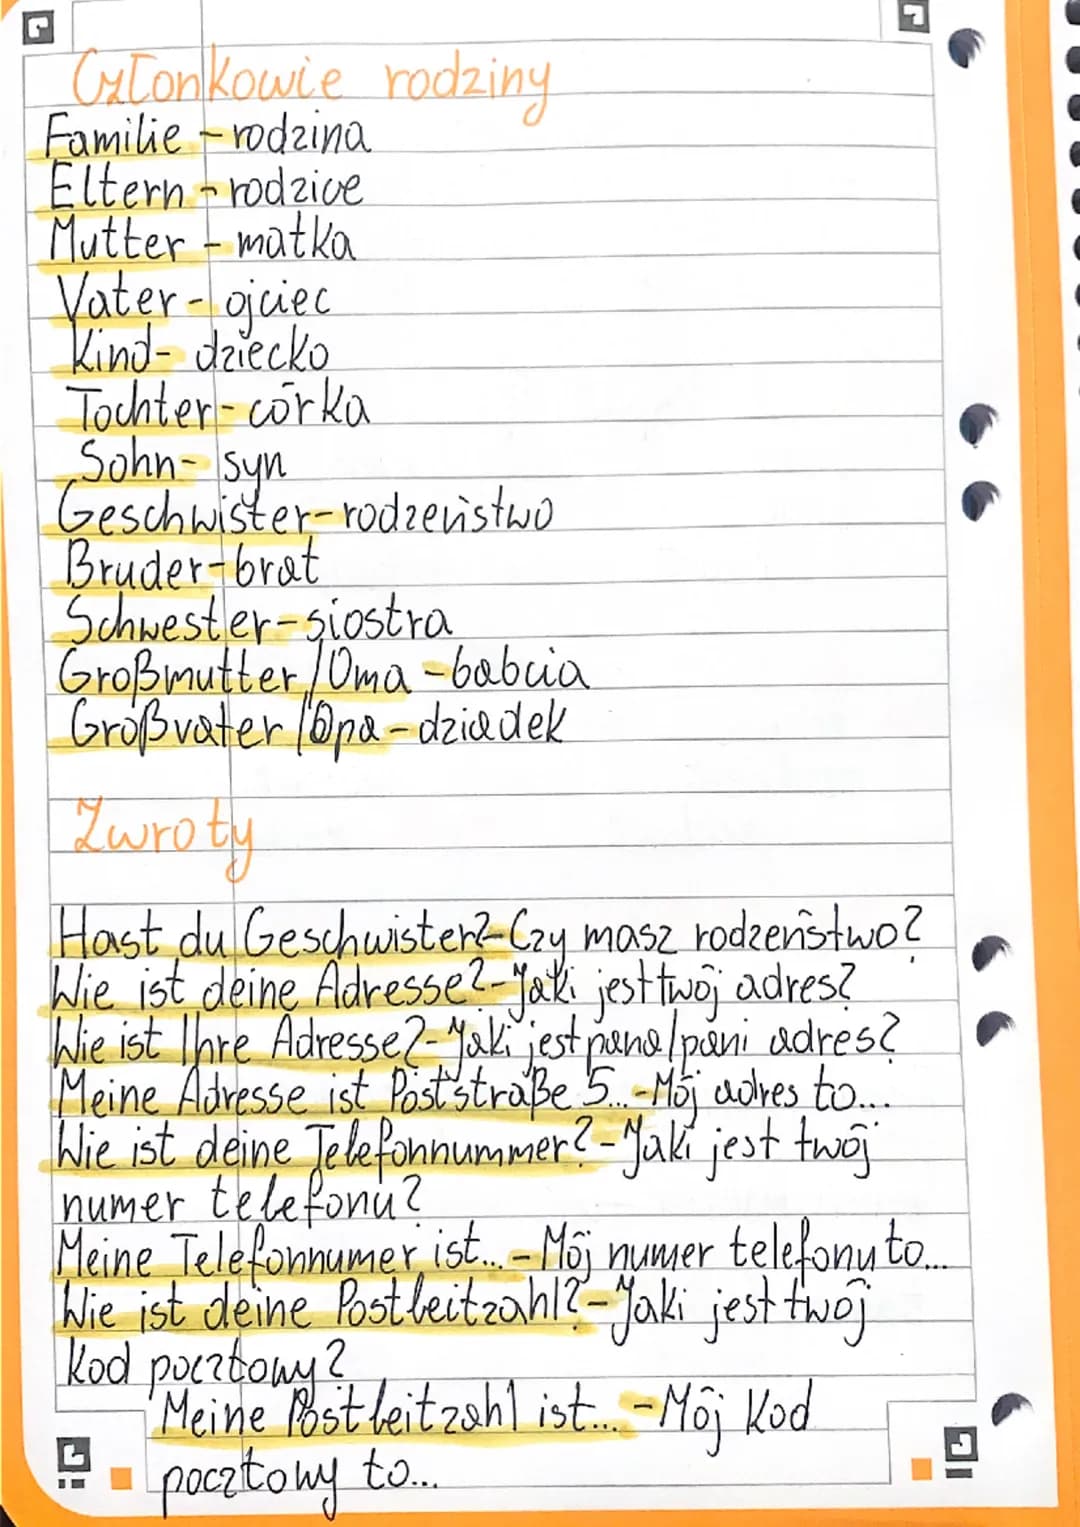 Członkowie rodziny
Familie - rodzina
Eltern - rodzice
Mutter - matka
Vater - ojciec
Kind - dziecko
Tochter - córka
Sohn - syn
Geschwister - rodzeństwo
Bruder - brat
Schwester - siostra
Großmutter/Oma - babcia
Großvater/Opa - dziadek
Zwroty
Hast du Geschwister? - Czy masz rodzeństwo?
Wie ist deine Adresse? - Jaki jest twój adres?
Wie ist Ihre Adresse? - Jaki jest pana/pani adres?
Meine Adresse ist Poststraße 5... - Mój adres to...
Wie ist deine Telefonnummer? - Jaki jest twój
numer telefonu?
Meine Telefonnumer ist... - Mój numer telefonu to...
Wie ist deine Postleitzahl? - Jaki jest twój
kod pocztowy?
Meine Postleitzahl ist... - Mój kod
pocztowy to...